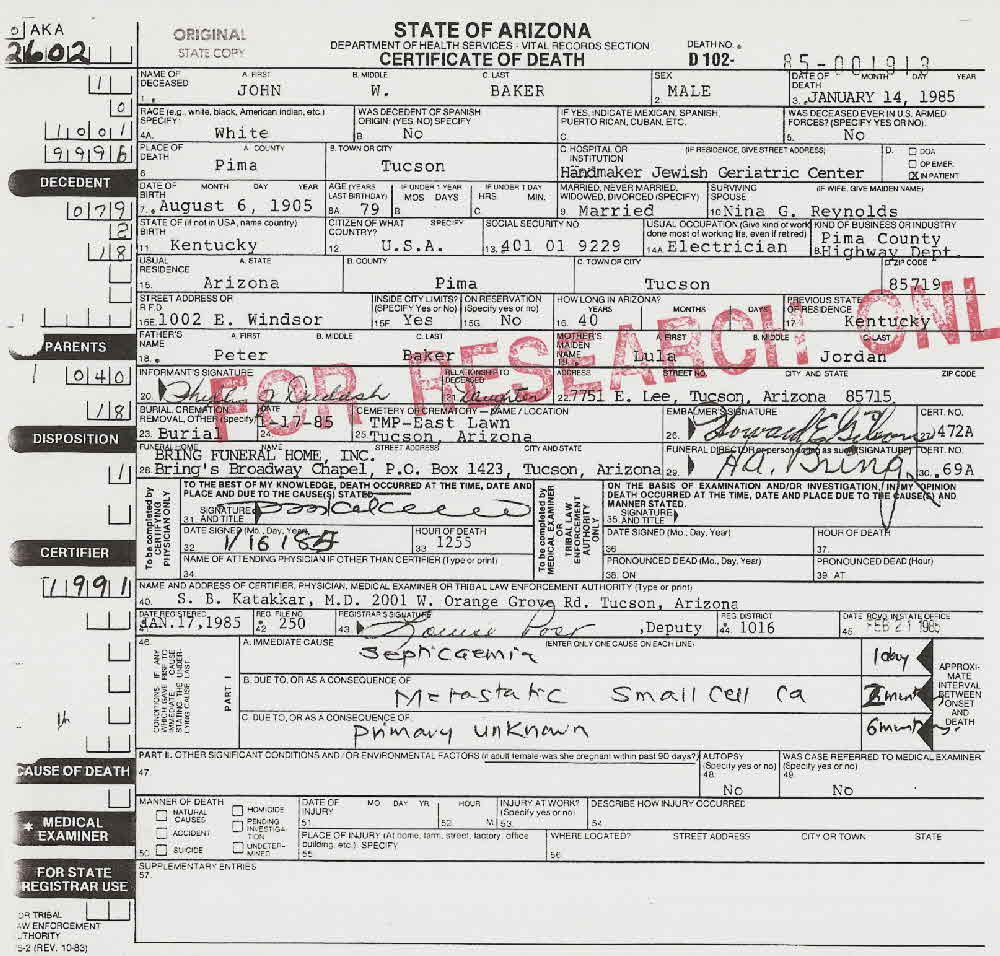 AKA
2602
ORIGINAL
STATE COPY
STATE OF ARIZONA
DEPARTMENT OF HEALTH SERVICES - VITAL RECORDS SECTION
CERTIFICATE OF DEATH
DEATH NO.
D 102-
85-001913
NAME OF DECEASED A. FIRST B. MIDDLE C. LAST SEX DATE OF DEATH MONTH DAY YEAR
1. JOHN W. BAKER 2. MALE 3. JANUARY 14, 1985
RACE (e.g., white, black, American indian, etc.) SPECIFY: WAS DECEDENT OF SPANISH ORIGIN: (YES, NO) SPECIFY IF YES, INDICATE MEXICAN, SPANISH, PUERTO RICAN, CUBAN, ETC. WAS DECEASED EVER IN U.S. ARMED FORCES? (SPECIFY YES OR NO).
4A. White B No C. 5. No
PLACE OF DEATH A. COUNTY B. TOWN OR CITY C. HOSPITAL OR INSTITUTION (IF RESIDENCE, GIVE STREET ADDRESS) D. DOA OP EMER. X IN PATIENT
6 Pima Tucson Handmaker Jewish Geriatric Center
DECEDENT
DATE OF BIRTH MONTH DAY YEAR AGE (YEARS LAST BIRTHDAY) IF UNDER 1 YEAR MOS DAYS IF UNDER 1 DAY HRS MIN. MARRIED, NEVER MARRIED, WIDOWED, DIVORCED (SPECIFY) SURVIVING SPOUSE (IF WIFE, GIVE MAIDEN NAME)
7. August 6, 1905 8A 79 B C 9. Married 10 Nina G. Reynolds
STATE OF BIRTH (if not in USA, name country) CITIZEN OF WHAT COUNTRY? SPECIFY SOCIAL SECURITY NO USUAL OCCUPATION (Give kind of work done most of working life, even if retired) KIND OF BUSINESS OR INDUSTRY
11. Kentucky 12. U.S.A. 13. 401 01 9229 14A Electrician B Pima County Highway Dept.
USUAL RESIDENCE A. STATE B. COUNTY C. TOWN OR CITY D. ZIP CODE
15. Arizona Pima Tucson 85719
STREET ADDRESS OR R.F.D INSIDE CITY LIMITS? (SPECIFY Yes or No) ON RESERVATION (Specify yes or no) HOW LONG IN ARIZONA? YEARS MONTHS DAYS PREVIOUS STATE OF RESIDENCE
15E 1002 E. Windsor 15F Yes 15G No 16. 40 17 Kentucky
PARENTS
FATHER'S NAME A. FIRST B. MIDDLE C. LAST MOTHER'S MAIDEN NAME A. FIRST B. MIDDLE C. LAST
18. Peter Baker Lula Jordan
FOR RESEARCH ONL
INFORMANT'S SIGNATURE RELATIONSHIP TO DECEASED ADDRESS STREET NO. CITY AND STATE ZIP CODE
20. 21. Daughter 22. 7751 E. Lee, Tucson, Arizona 85715
BURIAL, CREMATION, REMOVAL, OTHER (Specify) DATE CEMETERY OR CREMATORY — NAME / LOCATION EMBALMER'S SIGNATURE CERT. NO.
23. Burial 24 1-17-85 25 TMP-East Lawn Tucson, Arizona 26. Howard E. 27 472A
DISPOSITION
FUNERAL HOME NAME STREET ADDRESS CITY AND STATE FUNERAL DIRECTOR or person acting as such (SIGNATURE) CERT. NO.
28. BRING FUNERAL HOME, INC. Bring's Broadway Chapel, P.O. Box 1423, Tucson, Arizona 29. Bring 30. 69A
To be completed by CERTIFYING PHYSICIAN ONLY
TO THE BEST OF MY KNOWLEDGE, DEATH OCCURRED AT THE TIME, DATE AND PLACE AND DUE TO THE CAUSE(S) STATED
SIGNATURE
31. AND TITLE
DATE SIGNED (Mo., Day, Year) HOUR OF DEATH
32 1/16/85 33 1255
NAME OF ATTENDING PHYSICIAN IF OTHER THAN CERTIFIER (Type or print)
34.
To be completed by MEDICAL EXAMINER OR TRIBAL LAW ENFORCEMENT AUTHORITY ONLY
ON THE BASIS OF EXAMINATION AND/OR INVESTIGATION, IN MY OPINION DEATH OCCURRED AT THE TIME, DATE AND PLACE DUE TO THE CAUSE(S) AND MANNER STATED.
SIGNATURE
35. AND TITLE
DATE SIGNED (Mo., Day, Year) HOUR OF DEATH
36 37.
PRONOUNCED DEAD (Mo., Day, Year) PRONOUNCED DEAD (Hour)
38. ON 39 AT
CERTIFIER
NAME AND ADDRESS OF CERTIFIER, PHYSICIAN, MEDICAL EXAMINER OR TRIBAL LAW ENFORCEMENT AUTHORITY (Type or print)
40. S. B. Katakkar, M.D. 2001 W. Orange Grove Rd. Tucson, Arizona
DATE REGISTERED REG. FILE NO REGISTRAR'S SIGNATURE REG. DISTRICT DATE RCVD. IN STATE OFFICE
JAN.17,1985 42 250 43 Louise ,Deputy 44. 1016 45 FEB 21 1985
46. CONDITIONS IF ANY WHICH GAVE RISE TO IMMEDIATE CAUSE STATING THE UNDERLYING CAUSE LAST
PART I
A. IMMEDIATE CAUSE (ENTER ONLY ONE CAUSE ON EACH LINE)
Septicaemia 1 day
B. DUE TO, OR AS A CONSEQUENCE OF
Metastatic Small Cell Ca
C. DUE TO, OR AS A CONSEQUENCE OF
primary unknown 6 months.
APPROXIMATE INTERVAL BETWEEN ONSET AND DEATH
CAUSE OF DEATH
PART II. OTHER SIGNIFICANT CONDITIONS AND / OR ENVIRONMENTAL FACTORS (if adult female-was she pregnant within past 90 days?) AUTOPSY (Specify yes or no) WAS CASE REFERRED TO MEDICAL EXAMINER (Specify yes or no)
47. 48. No 49. No
* MEDICAL EXAMINER
MANNER OF DEATH NATURAL CAUSES ACCIDENT SUICIDE HOMICIDE PENDING INVESTIGATION UNDETERMINED
50.
DATE OF INJURY MO DAY YR HOUR INJURY AT WORK? (Specify yes or no) DESCRIBE HOW INJURY OCCURRED
51. 52. M 53. 54
PLACE OF INJURY (At home, farm, street, factory, office building, etc.) SPECIFY WHERE LOCATED? STREET ADDRESS CITY OR TOWN STATE
55 56.
FOR STATE REGISTRAR USE
SUPPLEMENTARY ENTRIES
57.
OR TRIBAL
AW ENFORCEMENT
UTHORITY
S-2 (REV. 10-83)